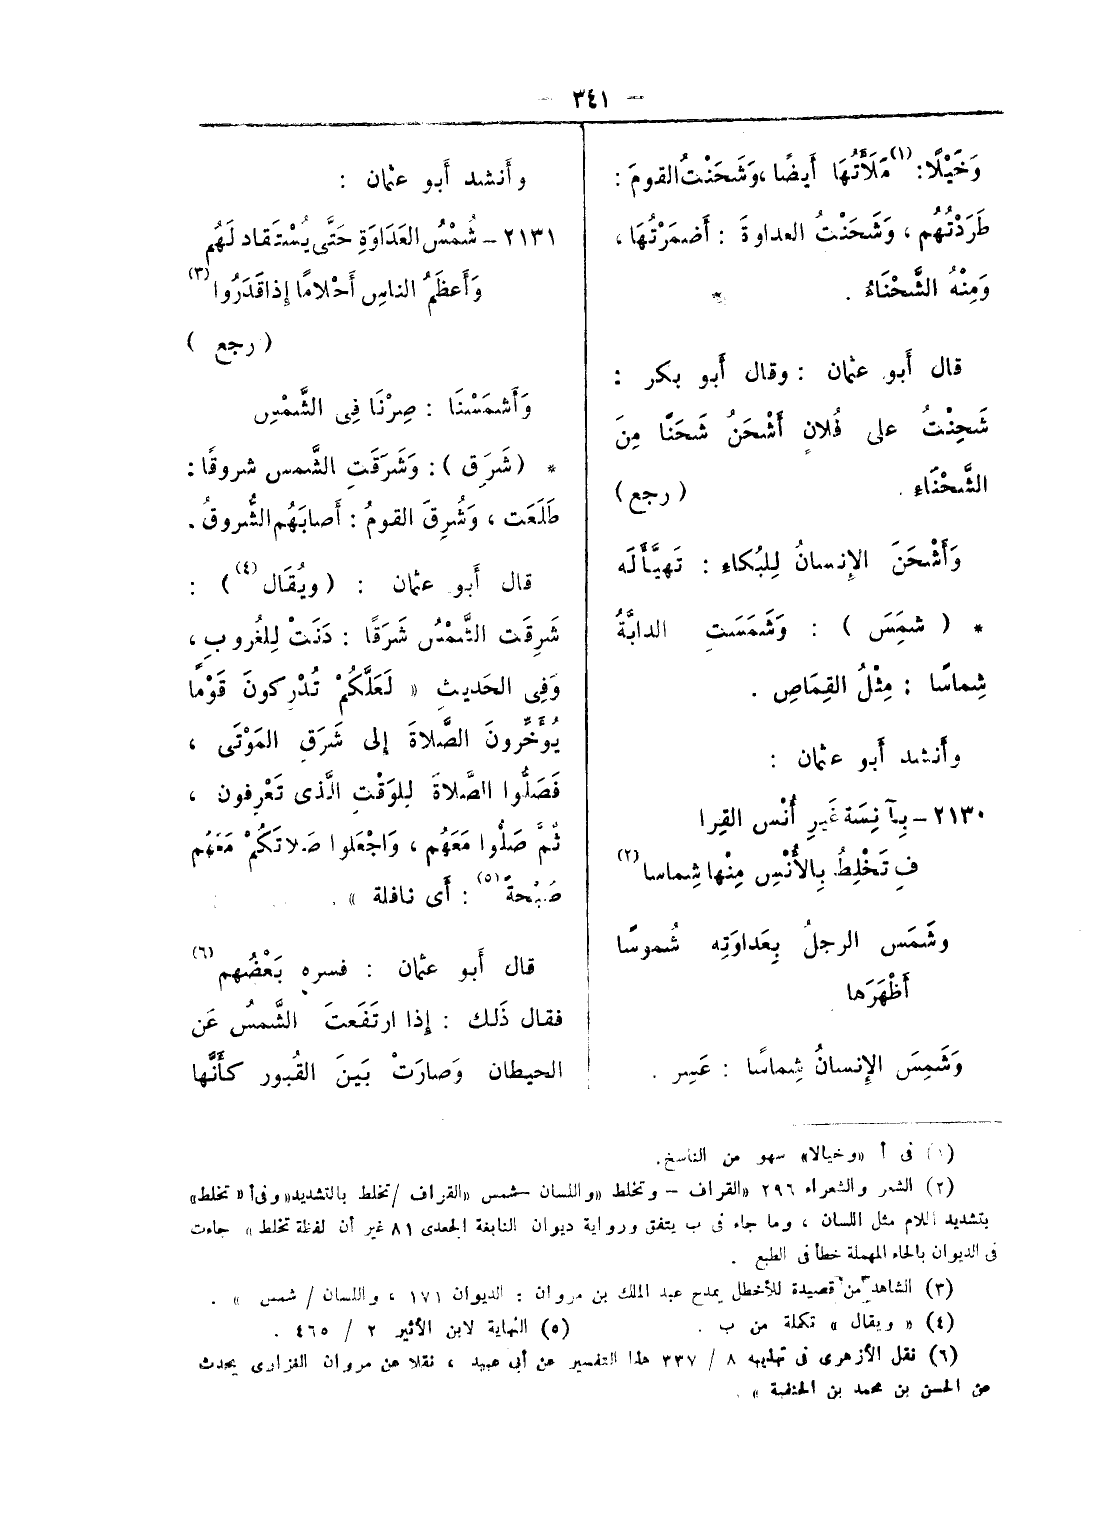 — ٣٤١ —
وَخَيْلًا:(١) مَلَأْتُهَا أَيضًا ، وَشَحَنْتُ القومَ :
طَرَدْتُهُم ، وَشَحَنْتُ العداوةَ : أَضمَرْتُها ،
وَمِنْهُ الشَّحْنَاءُ .
قال أَبو عثمان : وقال أَبو بكر :
شَحِنْتُ على فُلانٍ أَشْحَنُ شَحَنًا مِنَ
الشَّحْنَاءِ . ( رجع )
وَأَشْحَنَ الإِنسانُ لِلبُكاءِ : تَهيَّأَ لَه
* ( شمَِسَ ) : وَشَمَسَتِ الدابَّةُ
شِماسًا : مِثْلُ القِمَاصِ .
وأَنشد أَبو عثمان :
٢١٣٠ – بِآ نِسَة غَيرِ أُنْس القِرا
فِ تَخْلِطُ بِالأُنْسِ مِنْها شِماسا(٢)
وشَمَس الرجلُ بِعَداوَتِه شُموسًا
أَظْهَرَها
وَشَمِسَ الإِنسانُ شِماسًا : عَسِر .
وأَنشد أَبو عثمان :
٢١٣١ – شُمْسُ العَدَاوَةِ حَتَّى يُسْتَقاد لَهُم
وَأَعظَمُ الناسِ أَحْلامًا إِذا قَدَرُوا(٣)
( رجع )
وَأَشمَسْنَا : صِرْنَا فِى الشَّمْسِ
* ( شَرَِق ) : وَشَرَقَتِ الشَّمس شروقًا :
طَلَعَت ، وَشُرِقَ القومُ : أَصابَهُم الشُّروقُ .
قال أَبو عثمان : ( ويُقَال(٤) ) :
شَرِقَت الشَّمْسُ شَرَقًا : دَنَتْ لِلغُروبِ ،
وَفِى الحَديثِ « لَعَلَّكُمْ تُدْرِكونَ قَوْمًا
يُؤَخِّرونَ الصَّلاةَ إِلى شَرَقِ المَوْتَى ،
فَصَلُّوا الصَّلاةَ لِلوَقْتِ الَّذى تَعْرِفون ،
ثُمَّ صَلُّوا مَعَهُم ، وَاجْعَلوا صَلاتَكُمْ مَعَهُم
صُبْحةً(٥) : أَى نافلة » .
قال أَبو عثمان : فسره بَعْضُهم(٦)
فقال ذَلك : إِذا ارتَفَعتَ الشَّمسُ عَن
الحيطان وَصارَتْ بَينَ القُبور كأَنَّها
(١) فى أ «وخيالا» سهو من الناسخ.
(٢) الشعر والشعراء ٢٩٦ «القراف – وتخلط «واللسان – شمس «القراف / تخلط بالتشديد» وفى أ « تخلط»
بتشديد اللام مثل اللسان ، وما جاء فى ب يتفق ورواية ديوان النابغة الجعدى ٨١ غير أن لفظة تخلط » جاءت
فى الديوان بالحاء المهملة خطأ فى الطبع .
(٣) الشاهد من قصيدة للأخطل يمدح عبد الملك بن مروان : الديوان ١٧١ ، واللسان / شمس » .
(٤) « ويقال » تكملة من ب . (٥) النهاية لابن الأثير ٢ / ٤٦٥ .
(٦) نقل الأزهرى فى تهذيبه ٨ / ٣٣٧ هذا التفسير عن أبى عبيد ، نقلا عن مروان الفزارى يحدث
عن الحسن بن محمد بن الحنفية » .